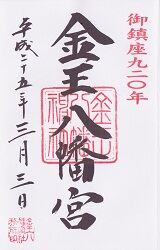 御鎮座九二〇年
金王八幡宮
平成二十五年三月三日